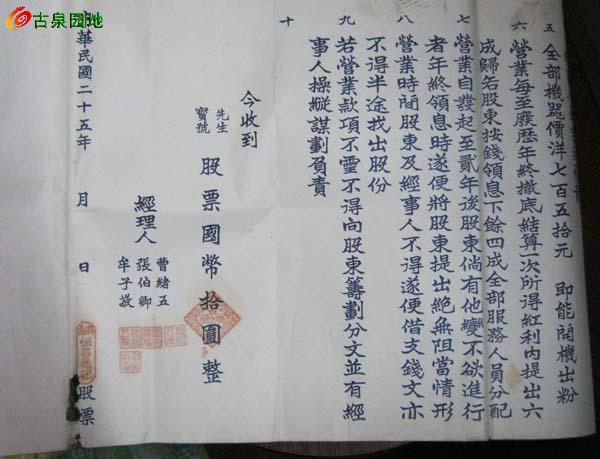 古泉园地
五 全部機器價洋七百五拾元 即能開機出粉
六 營業每至廢歷年終撤底結算一次所得紅利內提出六
成歸各股東按錢領息下餘四成全部服務人員分配
七 營業自發起至貳年後股東倘有他變不欲進行
者年終領息時遂便將股東提出絶無阻當情形
八 營業時間股東及經事人不得遂便借支錢文亦
不得半途找出股份
九 若營業款項不靈不得向股東籌劃分文並有經
事人操縱謀劃負責
十
今收到
先生
寶號
股票國幣拾圓整
經理人
曹緒五
張伯卿
牟子敬
中華民國二十五年 月 日 股票